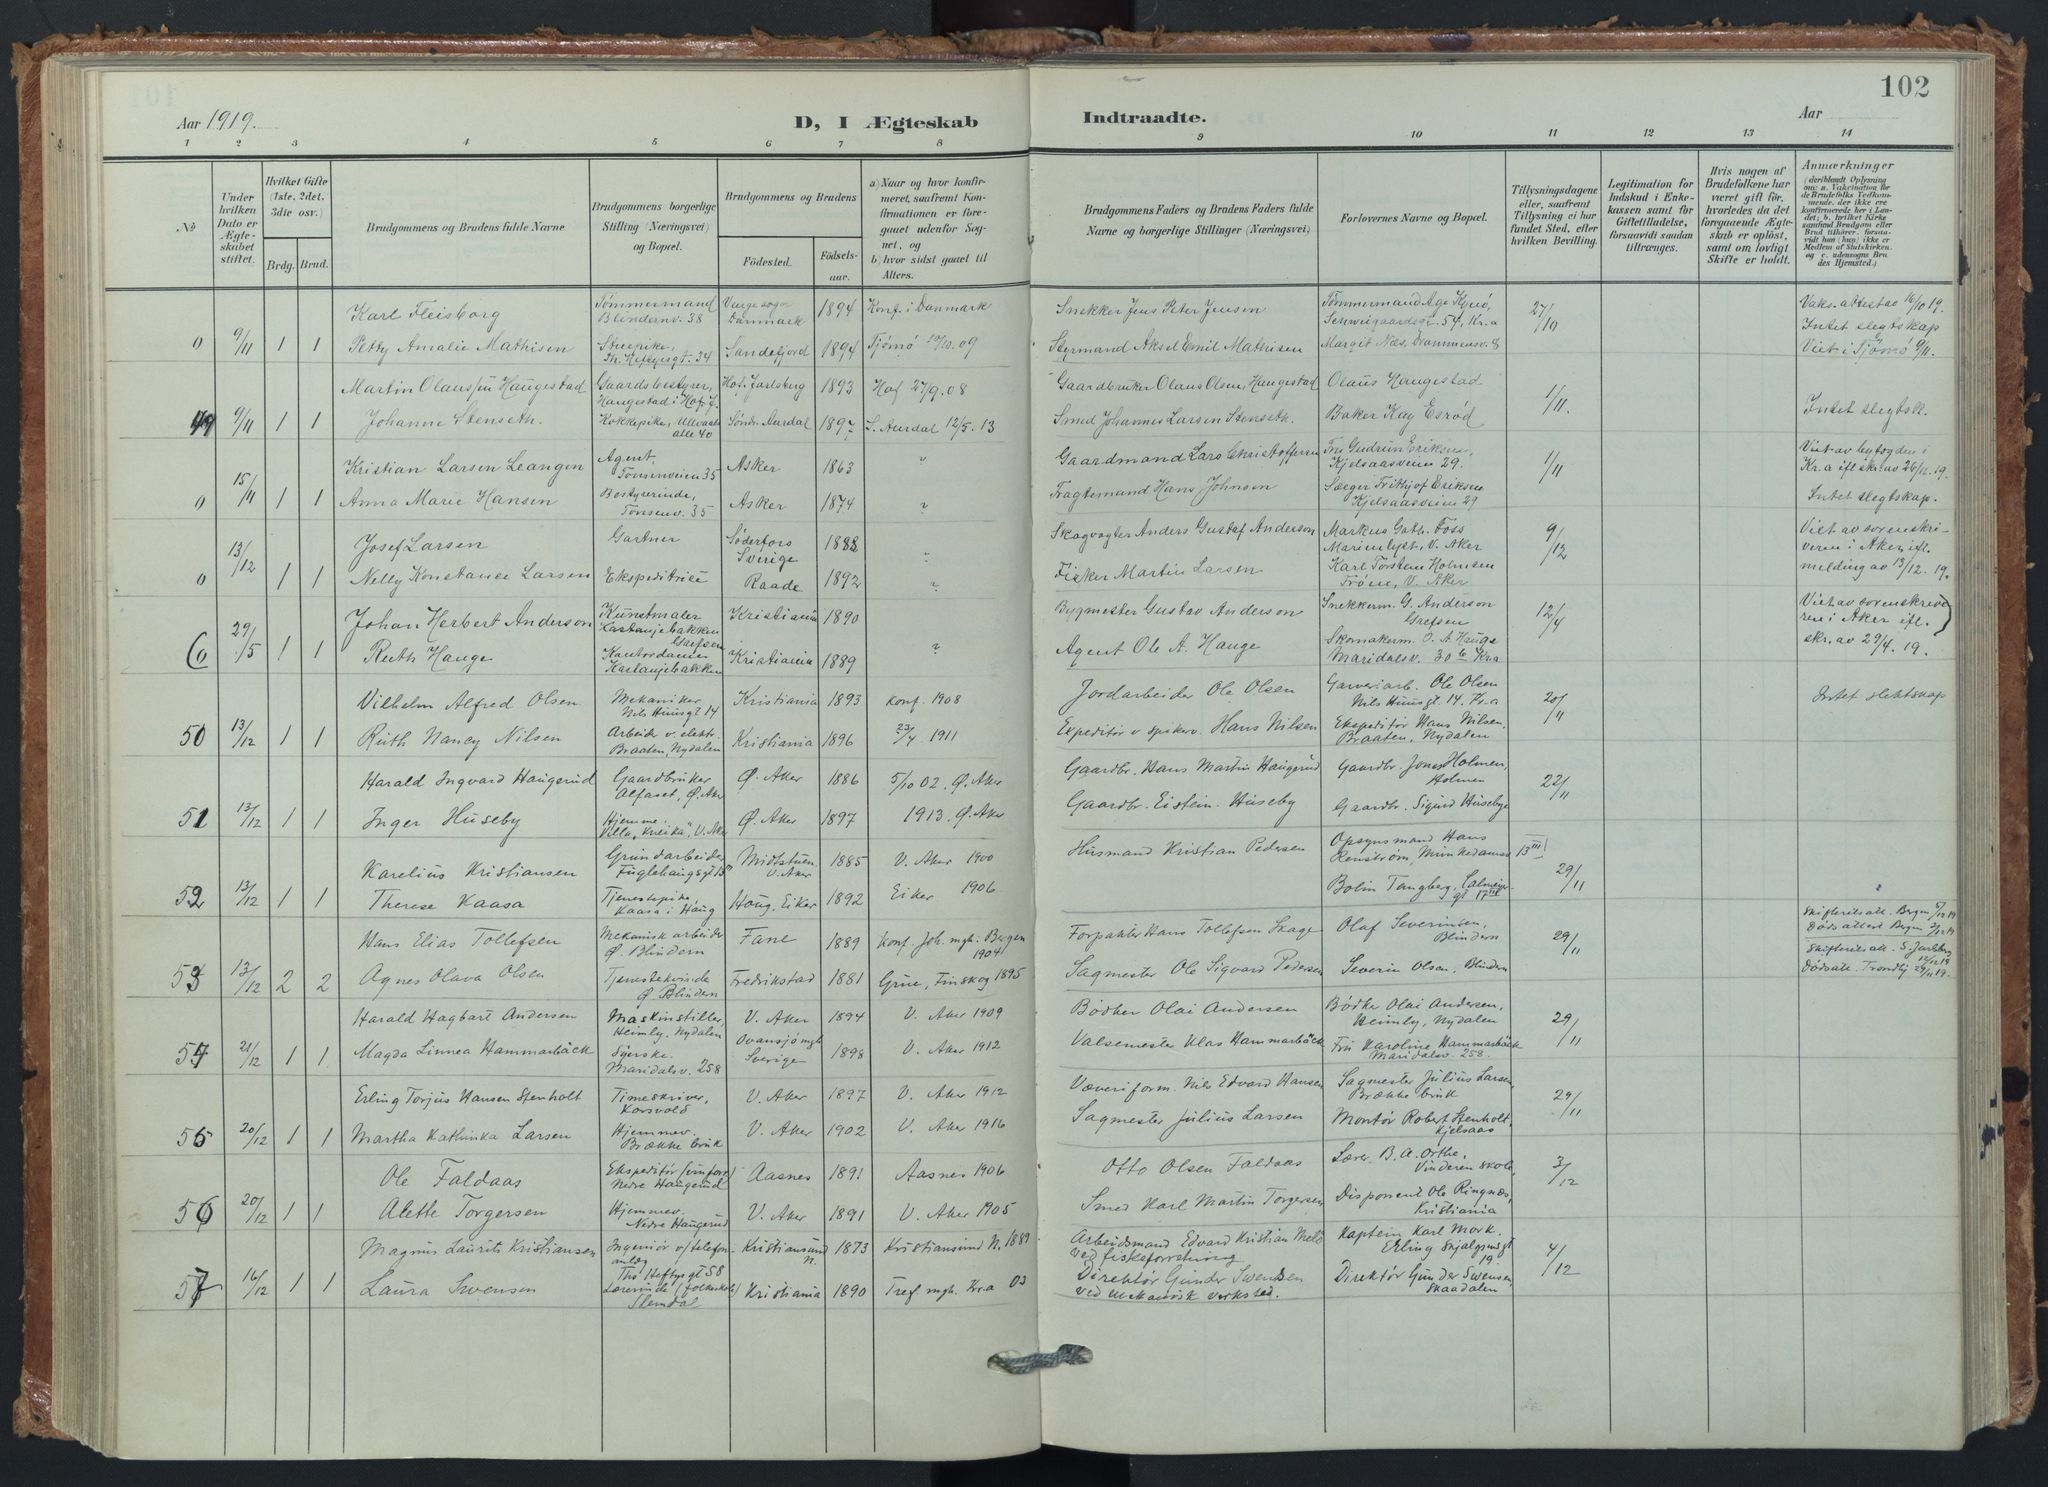 102
Aar 1919.
D, I Ægteskab
Indtraadte.
Aar
1 2 3 4 5 6 7 8 9 10 11 12 13 14
No
Under hvilken Dato er Ægteskabet stiftet.
Hvilket Gifte (1ste, 2det, 3die osv.)
Brdg. Brud.
Brudgommens og Brudens fulde Navne
Brudgommens borgerlige Stilling (Næringsvei) og Bopæl.
Brudgommens og Brudens
Fødested.
Fødselsaar.
a) Naar og hvor konfirmeret, saafremt Konfirmationen er foregaaet udenfor Sognet, og
b) hvor sidst gaaet til Alters.
Brudgommens Faders og Brudens Faders fulde Navne og borgerlige Stillinger (Næringsvei)
Forlovernes Navne og Bopæl.
Tillysningsdagene eller, saafremt Tillysning ei har fundet Sted, efter hvilken Bevilling.
Legitimation for Indskud i Enkekassen samt for Giftetilladelse, forsaavidt saadan tiltrænges.
Hvis nogen af Brudefolkene har været gift før, hvorledes da det foregaaende Ægteskab er opløst, samt om lovligt Skifte er holdt.
Anmærkninger
(deriblandt Oplysning om: a. Vakcination for de Brudefolks Vedkommende, der ikke ere konfirmerede her i Landet; b. hvilket Kirkesamfund Brudgom eller Brud tilhører, forsaavidt han (hun) ikke er Medlem af Statskirken, og c. udensogns Brudes Hjemsted.)
Karl Fleisborg Tømmermand Blindernv. 38 Danmark 1894 Konf. i Danmark Snekker Jens Peter Jensen Tømmermand Schweigaardsgt. 54, Kr.a 27/10 Vaks. attest av 16/10 19.
0 9/11 1 1 Petty Amalie Mathisen Th. Heftyesgt. 34 Sandefjord 1894 Tjømø 09 Styrmand Aksel Emil Mathisen Margit Næs, Drammensv. 8 Intet slegtskap Viet i Tjømø 9/11.
Martin Olaussen Haugestad Gaardsbestyrer, Haugestad i Hof, J. Hof. Jarlsberg 1893 Hof 27/9. 08 Gaardbruker Olaus Olsen, Haugestad Olaus Haugestad 1/11.
49 9/11 1 1 Johanne Stenseth Kokkepike, Ullevaals alle 40 Søndr. Aurdal 1897 S. Aurdal 12/5. 13 Smed Johannes Larsen Stenseth Baker Kay Esrød Intet slegtsk.
Kristian Larsen Leangen Agent, Tonsenveien 35 Asker 1863 " Gaardmand Lars Christoffersen Fru Gudrun Eriksen, Kjelsaasveien 29. 1/11 Viet av byfogden i Kr.a ifl. skr. av 26/11. 19.
0 15/11 1 1 Anna Marie Hansen Bestyrerinde, Tonsenv. 35 Asker 1874 " Fragtemand Hans Johnsen Sæger Frithjof Eriksen Kjelsaasveien 29 Intet slegtskap.
Josef Larsen Gartner Söderfors Sverige 1888 " Skogvogter Anders Gustaf Anderson Markus Gath. Foss Marienlyst, V. Aker 9/12 Viet av sorenskriveren i Aker ifl. melding av 13/12. 19.
0 13/12 1 1 Nelly Konstance Larsen Ekspeditrice Raade 1892 " Fisker Martin Larsen Karl Torsten Holmsen Frøen, V. Aker
Johan Herbert Anderson Kunstmaler Kastanjebakken Grefsen Kristiania 1890 Bygmester Gustav Anderson Snekkerm. G. Anderson Grefsen 12/4 Viet av sorenskriveren i Aker ifl. skr. av 29/4. 19.
0 29/5 1 1 Ruth Hauge Kontordame Kastanjebakken Kristiania 1889 " Agent Ole A. Hauge Skomakerm. O. A. Hauge Maridalsv. 30 b Kr.a
Vilhelm Alfred Olsen Mekaniker Nils Huusgt 14 Kristiania 1893 Konf. 1908 Jordarbeider Ole Olsen Garveriarb. Ole Olsen Nils Huusgt. 14. Kr.a 20/11 Intet slektskap
50 13/12 1 1 Ruth Nancy Nilsen Arbeider v. elektr. Braaten, Nydalen Kristiania 1896 23/7 1911 Expeditør v spikerv. Hans Nilsen Ekspeditør Hans Nilsen, Braaten, Nydalen
Harald Ingvard Haugerud Gaardbruker Alfaset, Ø. Aker Ø. Aker 1886 5/10 02. Ø. Aker Gaardbr. Hans Martin Haugerud Gaardbr. Jonas Holmen, Holmen 22/11
51 13/12 1 1 Inger Huseby Hjemme. Villa "Kneika", V. Aker Ø. Aker 1897 1913. Ø. Aker Gaardbr. Eistein Huseby Gaardbr. Sigurd Huseby
Karelius Kristiansen Grundarbeider Fuglehaugsgt 15 Midtstuen V. Aker 1885 V. Aker 1900 Husmand Kristian Pedersen Opsynsmand Hans Renström, Munkedamsv 13 III 29/11
52 13/12 1 1 Therese Kaasa Tjenestepike, Kaasa i Haug Haug, Eiker 1892 Eiker 1906 Bolin Tangberg, gt 17 III
Hans Elias Tollefsen Mekanisk arbeider Ø. Blindern Fane 1889 Konf. Joh. mgh. Bergen 1904 Forpakter Hans Tollefsen Skage Olaf Severinsen, Blindern 29/11 Skifteretsatt. Bergen 5/12 19 Dødsattest Bergen
53 13/12 2 2 Agnes Olava Olsen Tjenestekvinde Ø Blindern Fredrikstad 1881 Grue, Finskog 1895 Sagmester Ole Sigvard Pedersen Severin Olsen, Blindern Skifteretsatt. S. Jarlsberg Dødsatt. Trondhj. 24/11 19.
Harald Hagbart Andersen Maskinstiller, Heimly, Nydalen V. Aker 1894 V. Aker 1909 Bødker Olai Andersen Bødker Olai Andersen, Heimly, Nydalen 29/11
54 21/12 1 1 Magda Linnea Hammarbäck Syerske. Maridalsv. 258 Ovansjö mgh Sverige 1898 V. Aker 1912 Valsemester Klas Hammarbäck Fru Karoline Hammarbäck Maridalsv. 258.
Erling Torjus Hansen Stenholt Timeskriver, Korsvold V. Aker 1897 V. Aker 1912 Væveriform. Nils Edvard Hansen Sagmester Julius Larsen, Brække bruk 29/11
55 20/12 1 1 Martha Kathinka Larsen Hjemmev. Brække bruk V. Aker 1902 V. Aker 1916 Sagmester Julius Larsen Montør Robert Stenholt, Kjelsaas
Ole Faldaas Ekspeditør Nedre Haugerud Aasnes 1891 Aasnes 1906 Otto Olsen Faldaas Lærer B. A. Orthe, Vinderen skole 3/12
56 20/12 1 1 Alette Torgersen Hjemmev. Nedre Haugerud V. Aker 1891 V. Aker 1905 Smed Karl Martin Torgersen Disponent Ole Ringnæs, Kristiania
Magnus Laurits Kristiansen Ingeniør v/telefonanlæg Ths Heftyesgt 58 Kristiansund N. 1873 Kristiansund N. 1889 Arbeidsmand Edvard Kristian Melø ved fiskeforretning Kaptein Karl Mork. Erling Skjalgsonsgt 19. 4/12
57 16/12 1 1 Laura Swensen Lærerinde (folkeskole) Slemdal Kristiania 1890 Tref. mgh. Kr.a 03 Direktør Gunder Swensen ved mekanisk verksted. Direktør Gunder Swensen Skaadalen